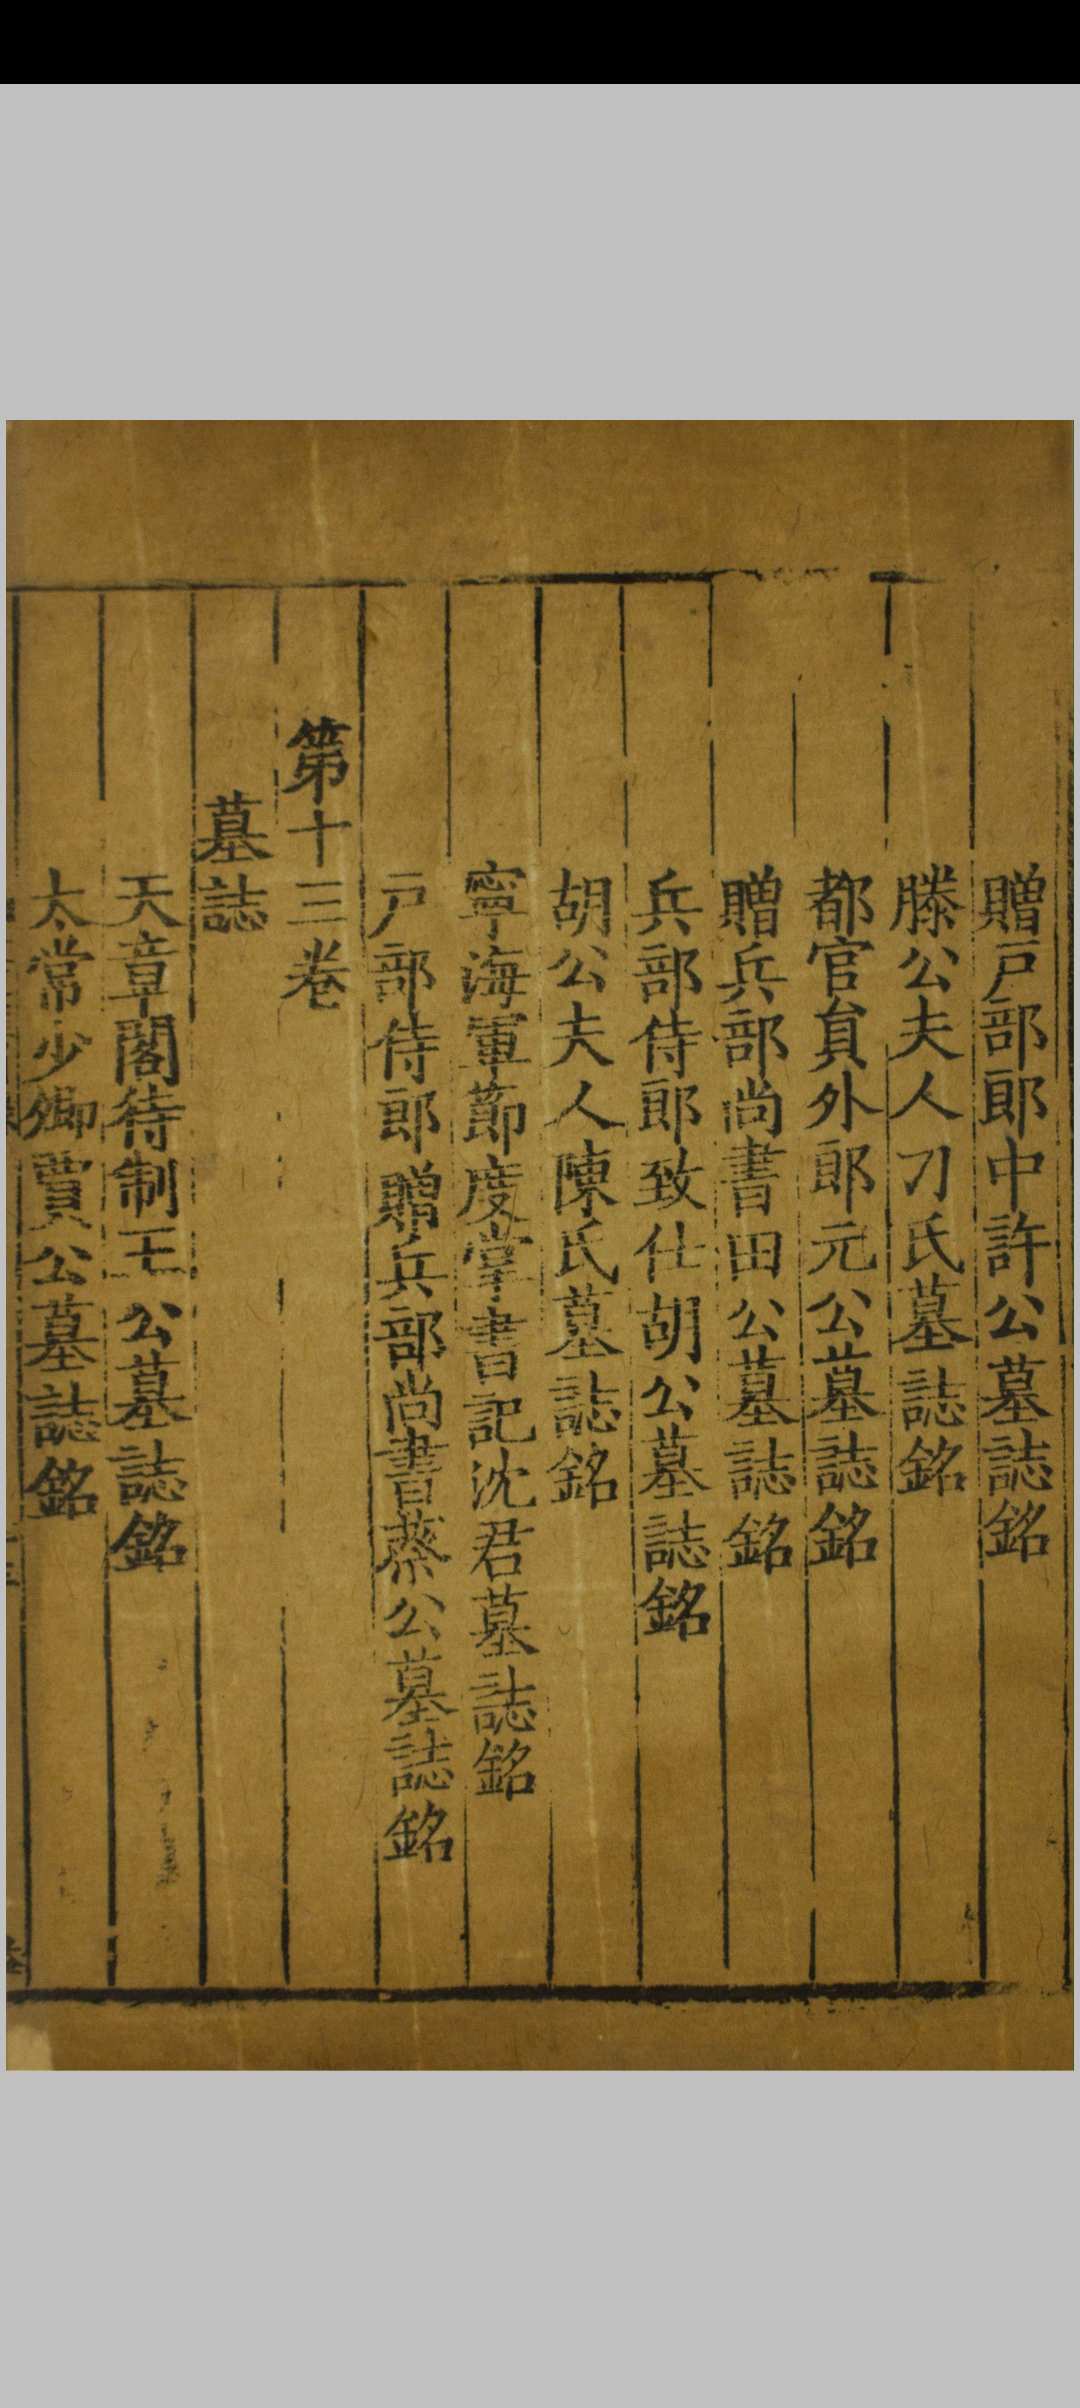 贈戸部郎中許公墓誌銘
滕公夫人刁氏墓誌銘
都官貟外郎元公墓誌銘
贈兵部尚書田公墓誌銘
兵部侍郎致仕胡公墓誌銘
胡公夫人陳氏墓誌銘
寧海軍節度掌書記沈君墓誌銘
戸部侍郎贈兵部尚書蔡公墓誌銘
第十三卷
墓誌
天章閣待制王公墓誌銘
太常少卿賈公墓誌銘